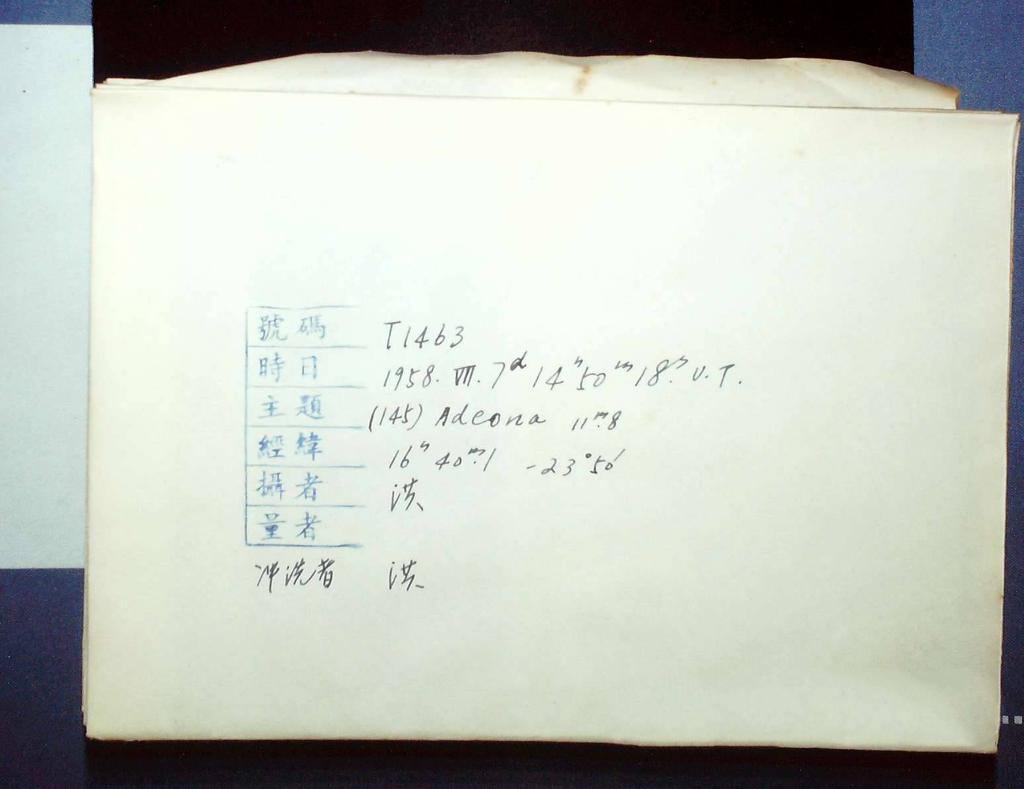 號碼 T1463
時日 1958. VII. 7ᵈ 14ʰ 50ᵐ 18ˢ. U.T.
主題 (145) Adeona 11ᵐ.8
經緯 16ʰ 40ᵐ.1 -23°50′
攝者 洪
量者
冲洗者 洪